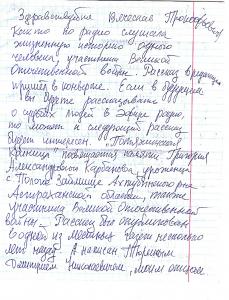 Здравствуйте Вячеслав
Как то по радио слушала
жизненную историю одного
человека, участника Великой
Отечественной войны. Рассказ
пришел в конверте. Если в будущем
Вы будете рассказывать
о судьбах людей в эфире радио
то может и следующий рассказ
будет интересен.
посвящается памяти Григория
Александровича уроженца
с Полого Займище Ахтубинского р-на
Астраханской области, также
участника Великой Отечественной
войны. Рассказ был опубликован
в одной из местных газет несколько
лет назад. А написан
Дмитрием Николаевичем, моим отцом